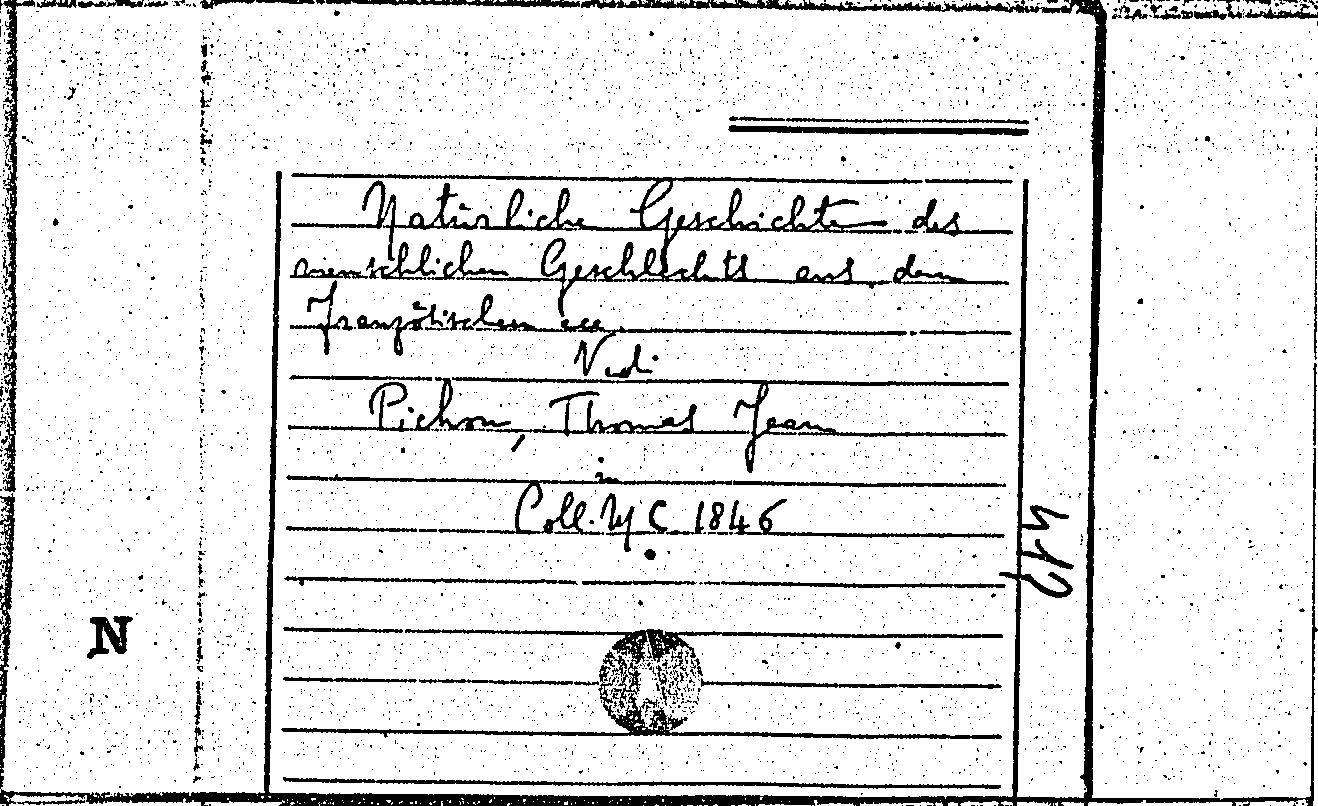 Natürliche Geschichte des
menschlichen Geschlechts aus dem
Französischen ecc.
Vedi
Pichon, Thomas Jean
in
Coll. Ny C 1846
N